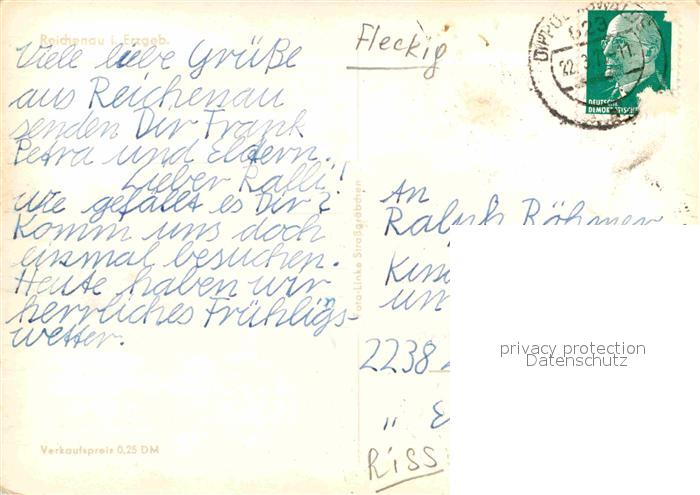 Reichenau i. Erzgeb.
Viele liebe Grüße
aus Reichenau
senden Dir Frank
Petra und Eldern.
Lieber Ralli!
Wie gefällt es Dir?
Komm uns doch
einmal besuchen.
Heute haben wir
herrliches Frühlings-
wetter.
Verkaufspreis 0,25 DM
Foto-Linke Straßgräbchen
Fleckig
22.3.
DEUTSCHE
DEMOKRATISCHE
An
Ralph Böhmer
2238
"
Riss
privacy protection
Datenschutz